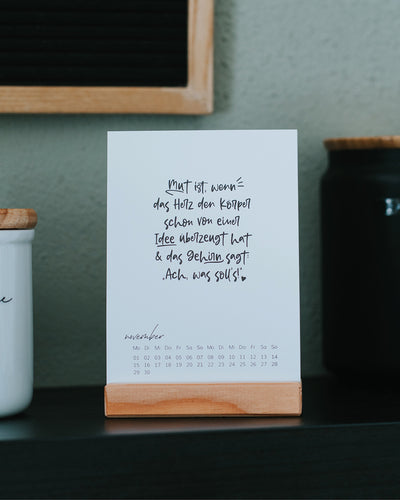 Mut ist, wenn
das Herz den Körper
schon von einer
Idee überzeugt hat
& das Gehirn sagt:
,Ach, was soll's!'
november
Mo Di Mi Do Fr Sa So Mo Di Mi Do Fr Sa So
01 02 03 04 05 06 07 08 09 10 11 12 13 14
15 16 17 18 19 20 21 22 23 24 25 26 27 28
29 30